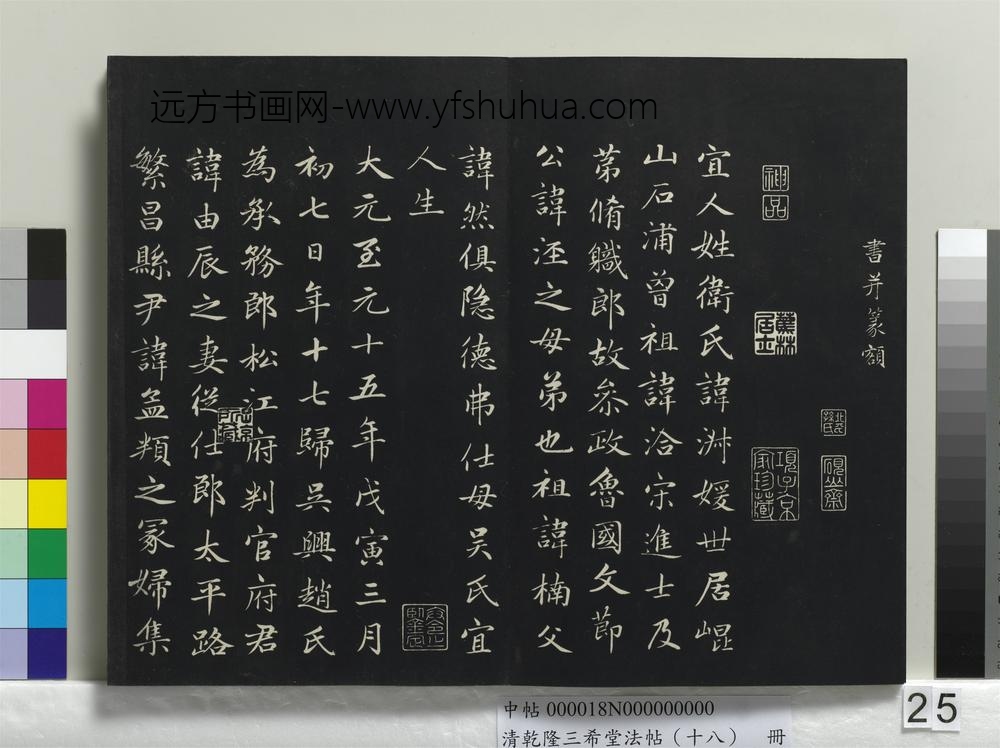 远方书画网-www.yfshuhua.com
書并篆額
神品
蕉林居士
項子京家珍藏
宜人姓衛氏諱淑媛世居崐
山石浦曾祖諱洽宋進士及
苐脩職郎故叅政魯國文莭
公諱涇之母弟也祖諱楠父
諱然俱隐德弗仕母吴氏宜
人生
大元至元十五年戊寅三月
初七日年十七歸吴興趙氏
為承務郎松江府判官府君
諱由辰之妻從仕郎太平路
繁昌縣尹諱孟頖之冢婦集
中帖 000018N000000000
清乾隆三希堂法帖（十八） 冊
25